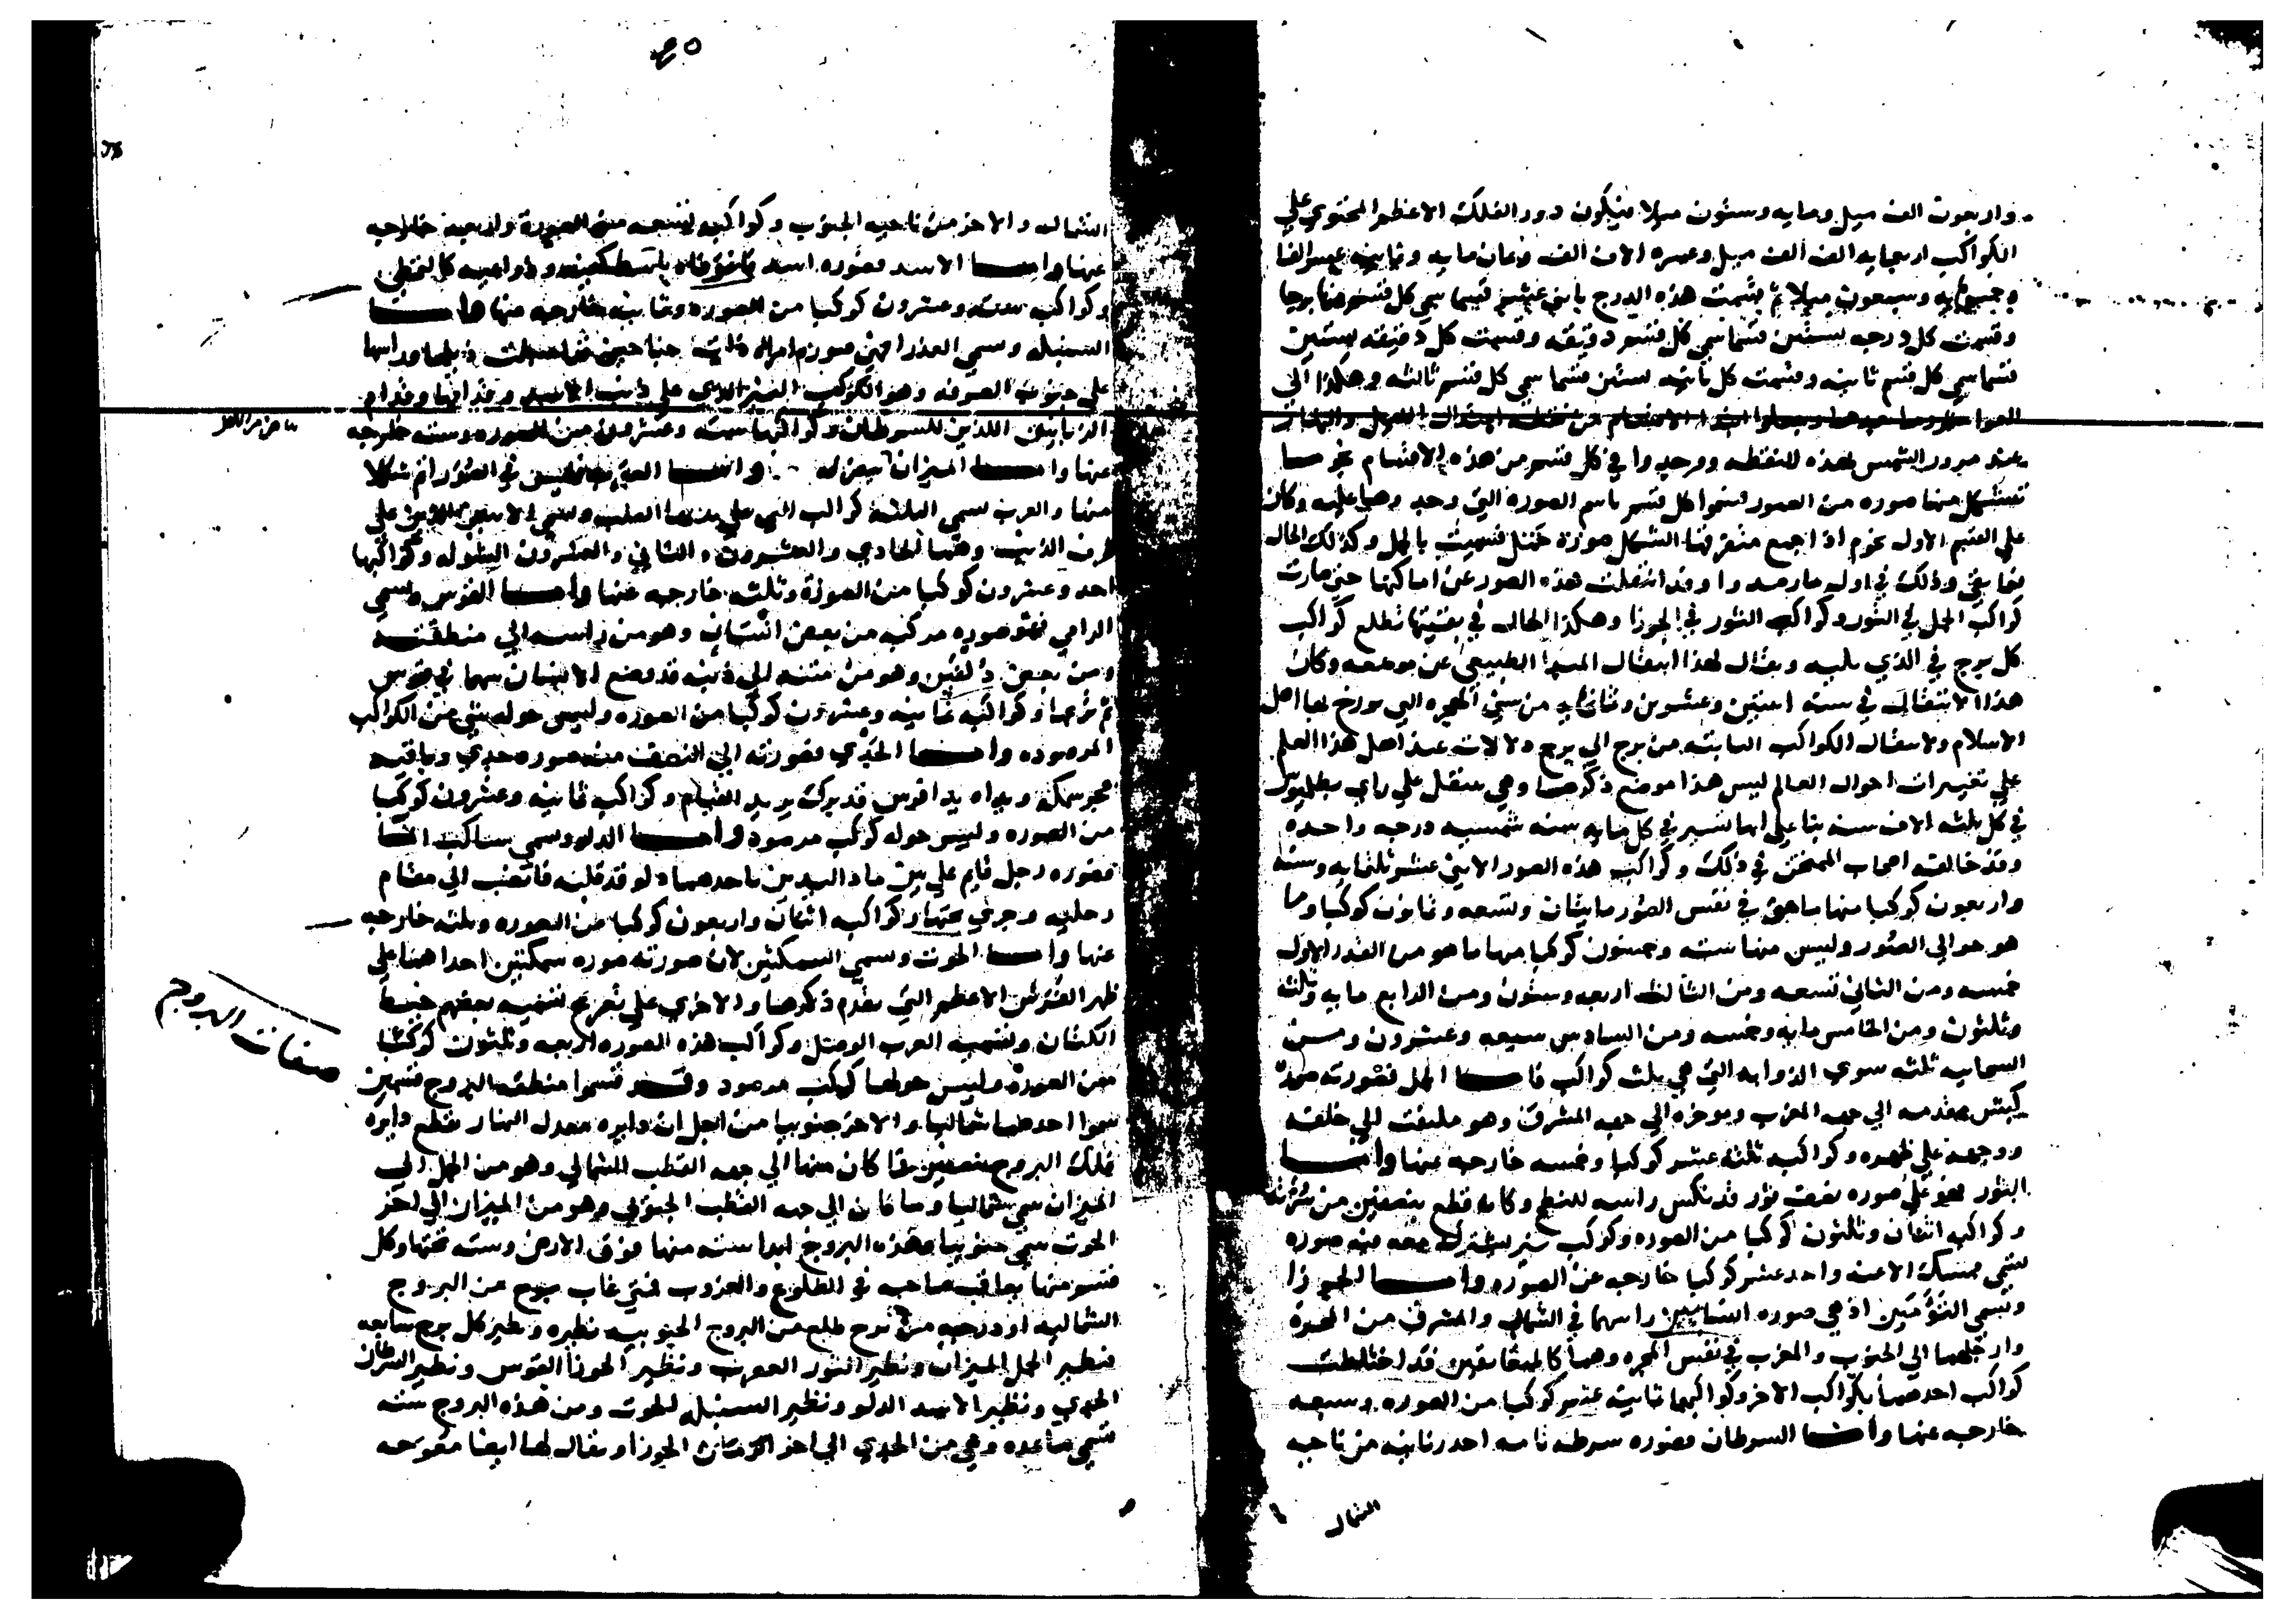 واربعون الف ميل ومايه وستون ميلا فيكون دور الفلك الاعظم المحتوي علي
الكواكب اربعمايه الف الف ميل وعشره الاف الف وثمان مايه وثمانيه عشر الفا
وخمسمايه وسبعون ميلا ثم قسمت هذه الدرج باثني عشر قسما سمي كل قسم منها برجا
وقسمت كل درجه بستين قسما سمي كل قسم دقيقه وقسمت كل دقيقه بستين
قسما سمي كل قسم ثانيه وقسمت كل ثانيه بستين قسما سمي كل قسم ثالثه وهكذا الي
وما بعدها وجعلوا ابتدا الاقسام من نقطه اعتدال الليل والنهار
عند مرور الشمس بهذه النقطه ووجدوا في كل قسم من هذه الاقسام نجوما
تتشكل منها صوره من الصور فسموا كل قسم باسم الصوره التي وجدوها عليه وكان
علي القسم الاول نجوم اذا جمع متفرقها تشكل صورة حمل فسميت بالحمل وكذلك الحال
فيما بقي وذلك في اول ما رصدوا وقد انتقلت هذه الصور عن اماكنها حتي صارت
كواكب الحمل في الثور وكواكب الثور في الجوزا وهكذا الحال في بقيتها تطلع كواكب
كل برج في الذي يليه ويقال لهذا انتقال المبدا الطبيعي عن موضعه وكان
هذا الانتقال في سنه اثنين وعشرين وثمانمايه من سني الهجره التي يورخ بها اهل
الاسلام ولانتقال الكواكب الثابته من برج الي برج دلالات عند اهل هذا العلم
علي تغييرات احوال العالم ليس هذا موضع ذكرها وهي تنتقل علي راي بطليموس
في كل ثلثه الاف سنه بنا علي انها تسير في كل مايه سنه شمسيه درجه واحده
وقد خالفه اصحاب الممتحن في ذلك وكواكب هذه الصور الاثني عشر ثلثمايه وسته
واربعون كوكبا منها ما هو في نفس الصور مايتان وتسعه وثمانون كوكبا وما
هو حوالي الصور وليس منها سته وخمسون كوكبا منها ما هو من القدر الاول
خمسه ومن الثاني تسعه ومن الثالث اربعه وستون ومن الرابع مايه وثلثه
وثلثون ومن الخامس مايه وخمسه ومن السادس سبعه وعشرون ومن
السحابيه ثلثه سوي الذوابه التي هي ثلث كواكب فاما الحمل فصورته صورة
كبش مقدمه الي جهه المغرب وموخره الي جهه المشرق وهو ملتفت الي خلفه
ووجهه علي ظهره وكواكبه ثلثه عشر كوكبا وخمسه خارجه عنها واما
الثور فهو علي صوره نصف ثور قد نكس راسه للنطح وكانه قطع بنصفين من سرته
وكواكبه اثنان وثلثون كوكبا من الصوره وكوكب نير يشترك معه فيه صوره
تسمي ممسك الاعنه واحد عشر كوكبا خارجه عن الصوره واما الجوزا
وتسمي التؤمين اذ هي صوره انسانين راسهما في الشمال والمشرق من المجرة
وارجلهما الي الجنوب والمغرب في نفس المجره وهما كالمتعانقين قد اختلطت
كواكب احدهما بكواكب الاخر وكواكبهما ثمانيه عشر كوكبا من الصوره وسبعه
خارجه عنها واما السرطان فصوره سرطان نامه احد زبانيه من ناحيه
الشمال
الشمال والاخر من ناحيه الجنوب وكواكبه تسعه من الصورة واربعه خارجه
عنها واما الاسد فصوره اسد باسط كفيه وذوابه
وكواكبه سته وعشرون كوكبا من الصوره وثمانيه خارجه عنها واما
السنبله وتسمي العذرا فهي صوره امراه ذات جناحين ذيلها وراسها
علي جنوب الصرفه وهو الكوكب النير الذي علي ذنب الاسد وقدام
الزبانيين اللذين للسرطان وكواكبها سته وعشرون من الصوره وسته خارجه
عنها واما الميزان واما العقرب فليس في الصور اتم شكلا
منها والعرب تسمي الثلثه كواكب التي علي بدنها القلب وتسمي الاثنين اللذين علي
طرف الذنب وهما الحادي والعشرون والثاني والعشرون الشوله وكواكبها
احد وعشرون كوكبا من الصورة وثلثه خارجه عنها واما القوس ويسمي
الرامي فهو صوره مركبه من بعض انسان وهو من راسه الي منطقته
ومن بعض وهو من متنه الي ذنبه قد وضع الانسان سهما في قوس
وكواكبه ثمانيه وعشرون كوكبا من الصوره وليس حوله شي من الكواكب
المرصوده واما الجدي فصورته الي النصف منه صوره جدي وباقيه
سمكه ويداه قد برك يريد القيام وكواكبه ثمانيه وعشرون كوكبا
من الصوره وليس حوله كوكب مرصود واما الدلو ويسمي ساكب الما
فصوره رجل قايم ماد اليدين باحدهما دلو قد قلبه فانصب الي مقام
رجليه وجري تحتها وكواكبه اثنان واربعون كوكبا من الصوره وثلثه خارجه
عنها واما الحوت وتسمي السمكتين لان صورته صوره سمكتين احداهما علي
ظهر الفرس الاعظم التي تقدم ذكرها والاخري علي تعريج تسميه بعضهم خيط
الكتان وتسميه العرب الوصل وكواكب هذه الصوره اربعه وثلثون كوكبا
من الصورة وليس حولها كوكب مرصود وقد قسموا منطقه البروج قسمين
سموا احدهما شماليا والاخر جنوبيا من اجل ان دايره معدل النهار تقطع دايره
فلك البروج بنصفين فما كان منها الي جهه القطب الشمالي وهو من الحمل الي
الميزان سمي شماليا وما كان الي جهه القطب الجنوبي وهو من الميزان الي اخر
الحوت سمي جنوبيا وهذه البروج ابدا سته منها فوق الارض وسته تحتها وكل
قسم منها يعاقب صاحبه في الطلوع والغروب فمتي غاب برج من البروج
الشماليه او درجه من برج طلع من البروج الجنوبيه نظيره ونظير كل برج سابعه
فنظير الحمل الميزان ونظير الثور العقرب ونظير الجوزا القوس ونظير السرطان
الجدي ونظير الاسد الدلو ونظير السنبله الحوت ومن هذه البروج سته
تسمي صاعده وهي من الجدي الي اخر الجوزا ويقال لها ايضا معوجه
صفات البروج